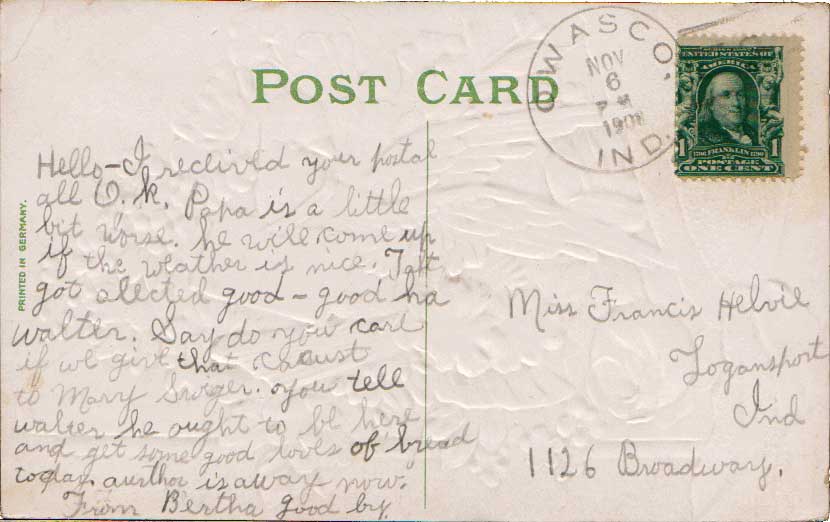 POST CARD
OWASCO, IND.
NOV
6
PM
1908
SERIES 1902
UNITED STATES OF
AMERICA
1706 FRANKLIN 1790
1 POSTAGE 1
ONE CENT
PRINTED IN GERMANY.
Hello - I recieived your postal
all O.k. Papa is a little
bit worse. he will come up
if the weather is nice. Taft
got alected good - good ha
walter. Say do you care
if we give that
to Mary you tell
walter he ought to be here
and get some good loves of bread
today. austhor is away now.
From Bertha good by.
Miss Francis Helvie
Logansport
Ind
1126 Broadway.